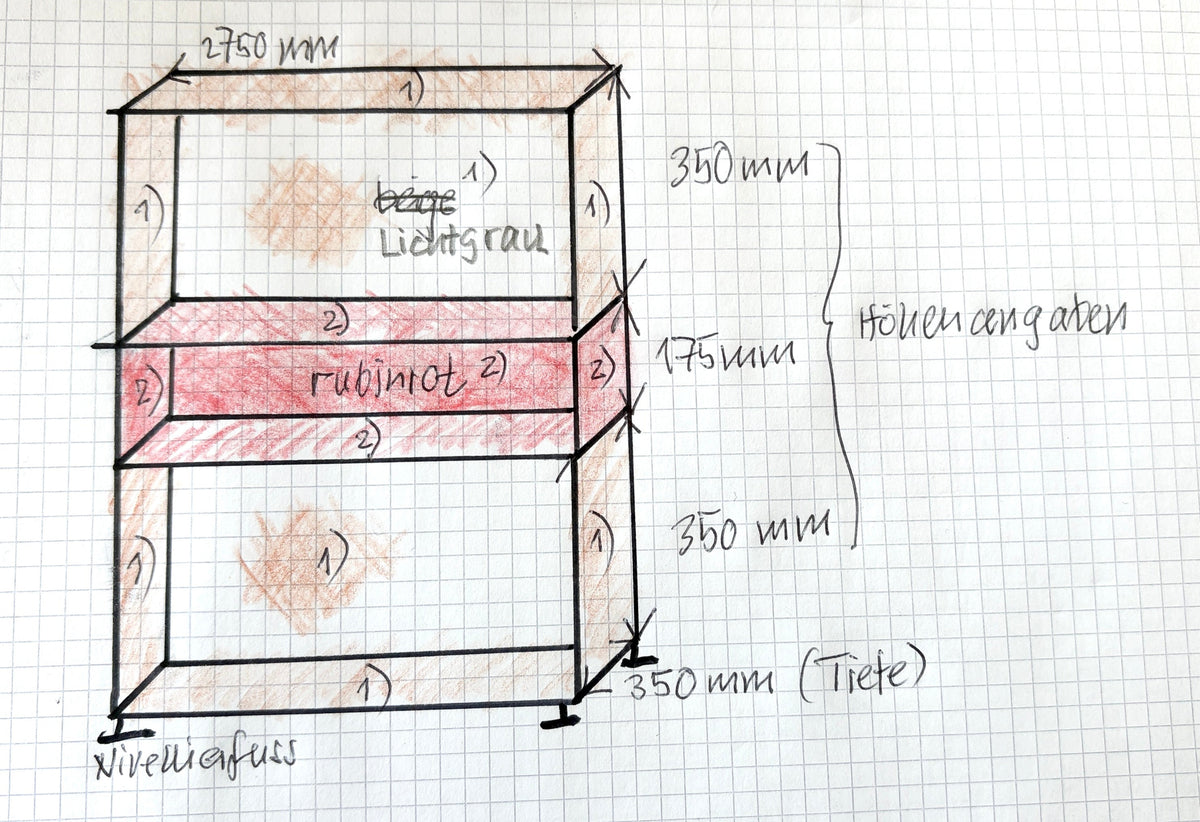 2750 mm
1)
1)
beige 1)
Lichtgrau
1)
350 mm
2)
2)
rubinrot 2)
2)
175 mm
Höhenangaben
2)
1)
1)
1)
350 mm
1)
350 mm (Tiefe)
Nivellierfuss